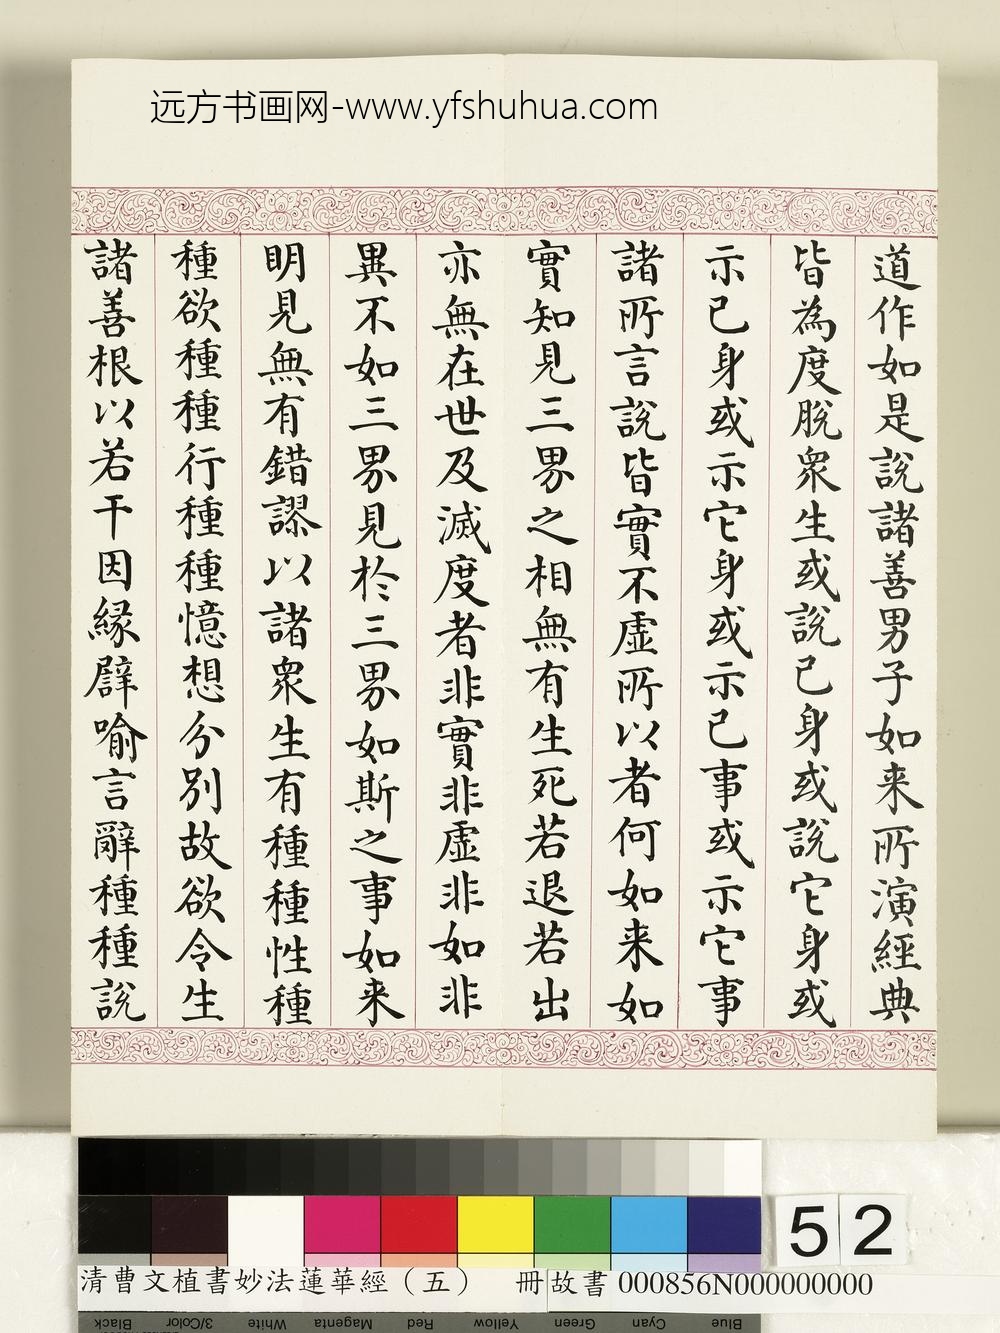 远方书画网-www.yfshuhua.com
道作如是説諸善男子如来所演經典
皆為度脫衆生或説己身或説它身或
示己身或示它身或示己事或示它事
諸所言説皆實不虛所以者何如来如
實知見三界之相無有生死若退若出
亦無在世及滅度者非實非虛非如非
異不如三界見於三界如斯之事如来
明見無有錯謬以諸衆生有種種性種
種欲種種行種種憶想分別故欲令生
諸善根以若干因緣辟喻言辭種種説
52
清曹文植書妙法蓮華經（五） 冊 故書 000856N000000000
Black 3/Color White Magenta Red Yellow Green Cyan Blue